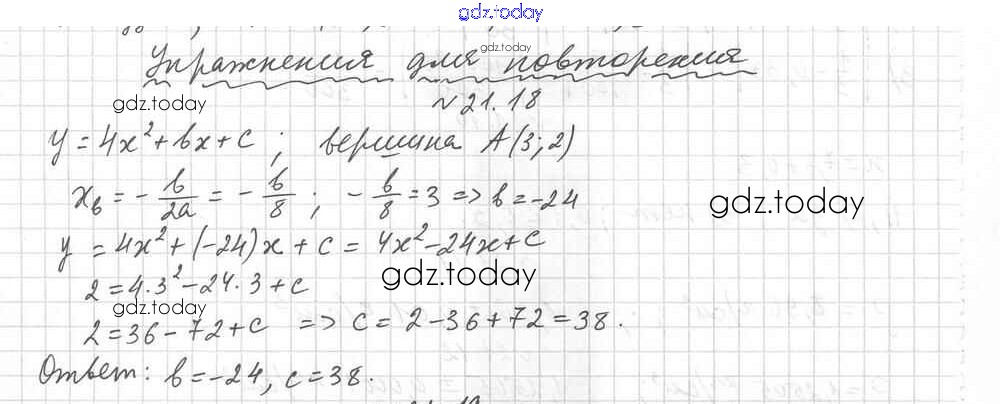 gdz.today
gdz.today
Упражнения для повторения
gdz.today
N 21.18
y = 4x² + bx + c ; вершина A(3; 2)
x_b = - b/2a = - b/8 ; - b/8 = 3 => b = -24
gdz.today
y = 4x² + (-24)x + c = 4x² - 24x + c
gdz.today
2 = 4·3² - 24·3 + c
gdz.today
2 = 36 - 72 + c => c = 2 - 36 + 72 = 38.
Ответ: b = -24, c = 38.